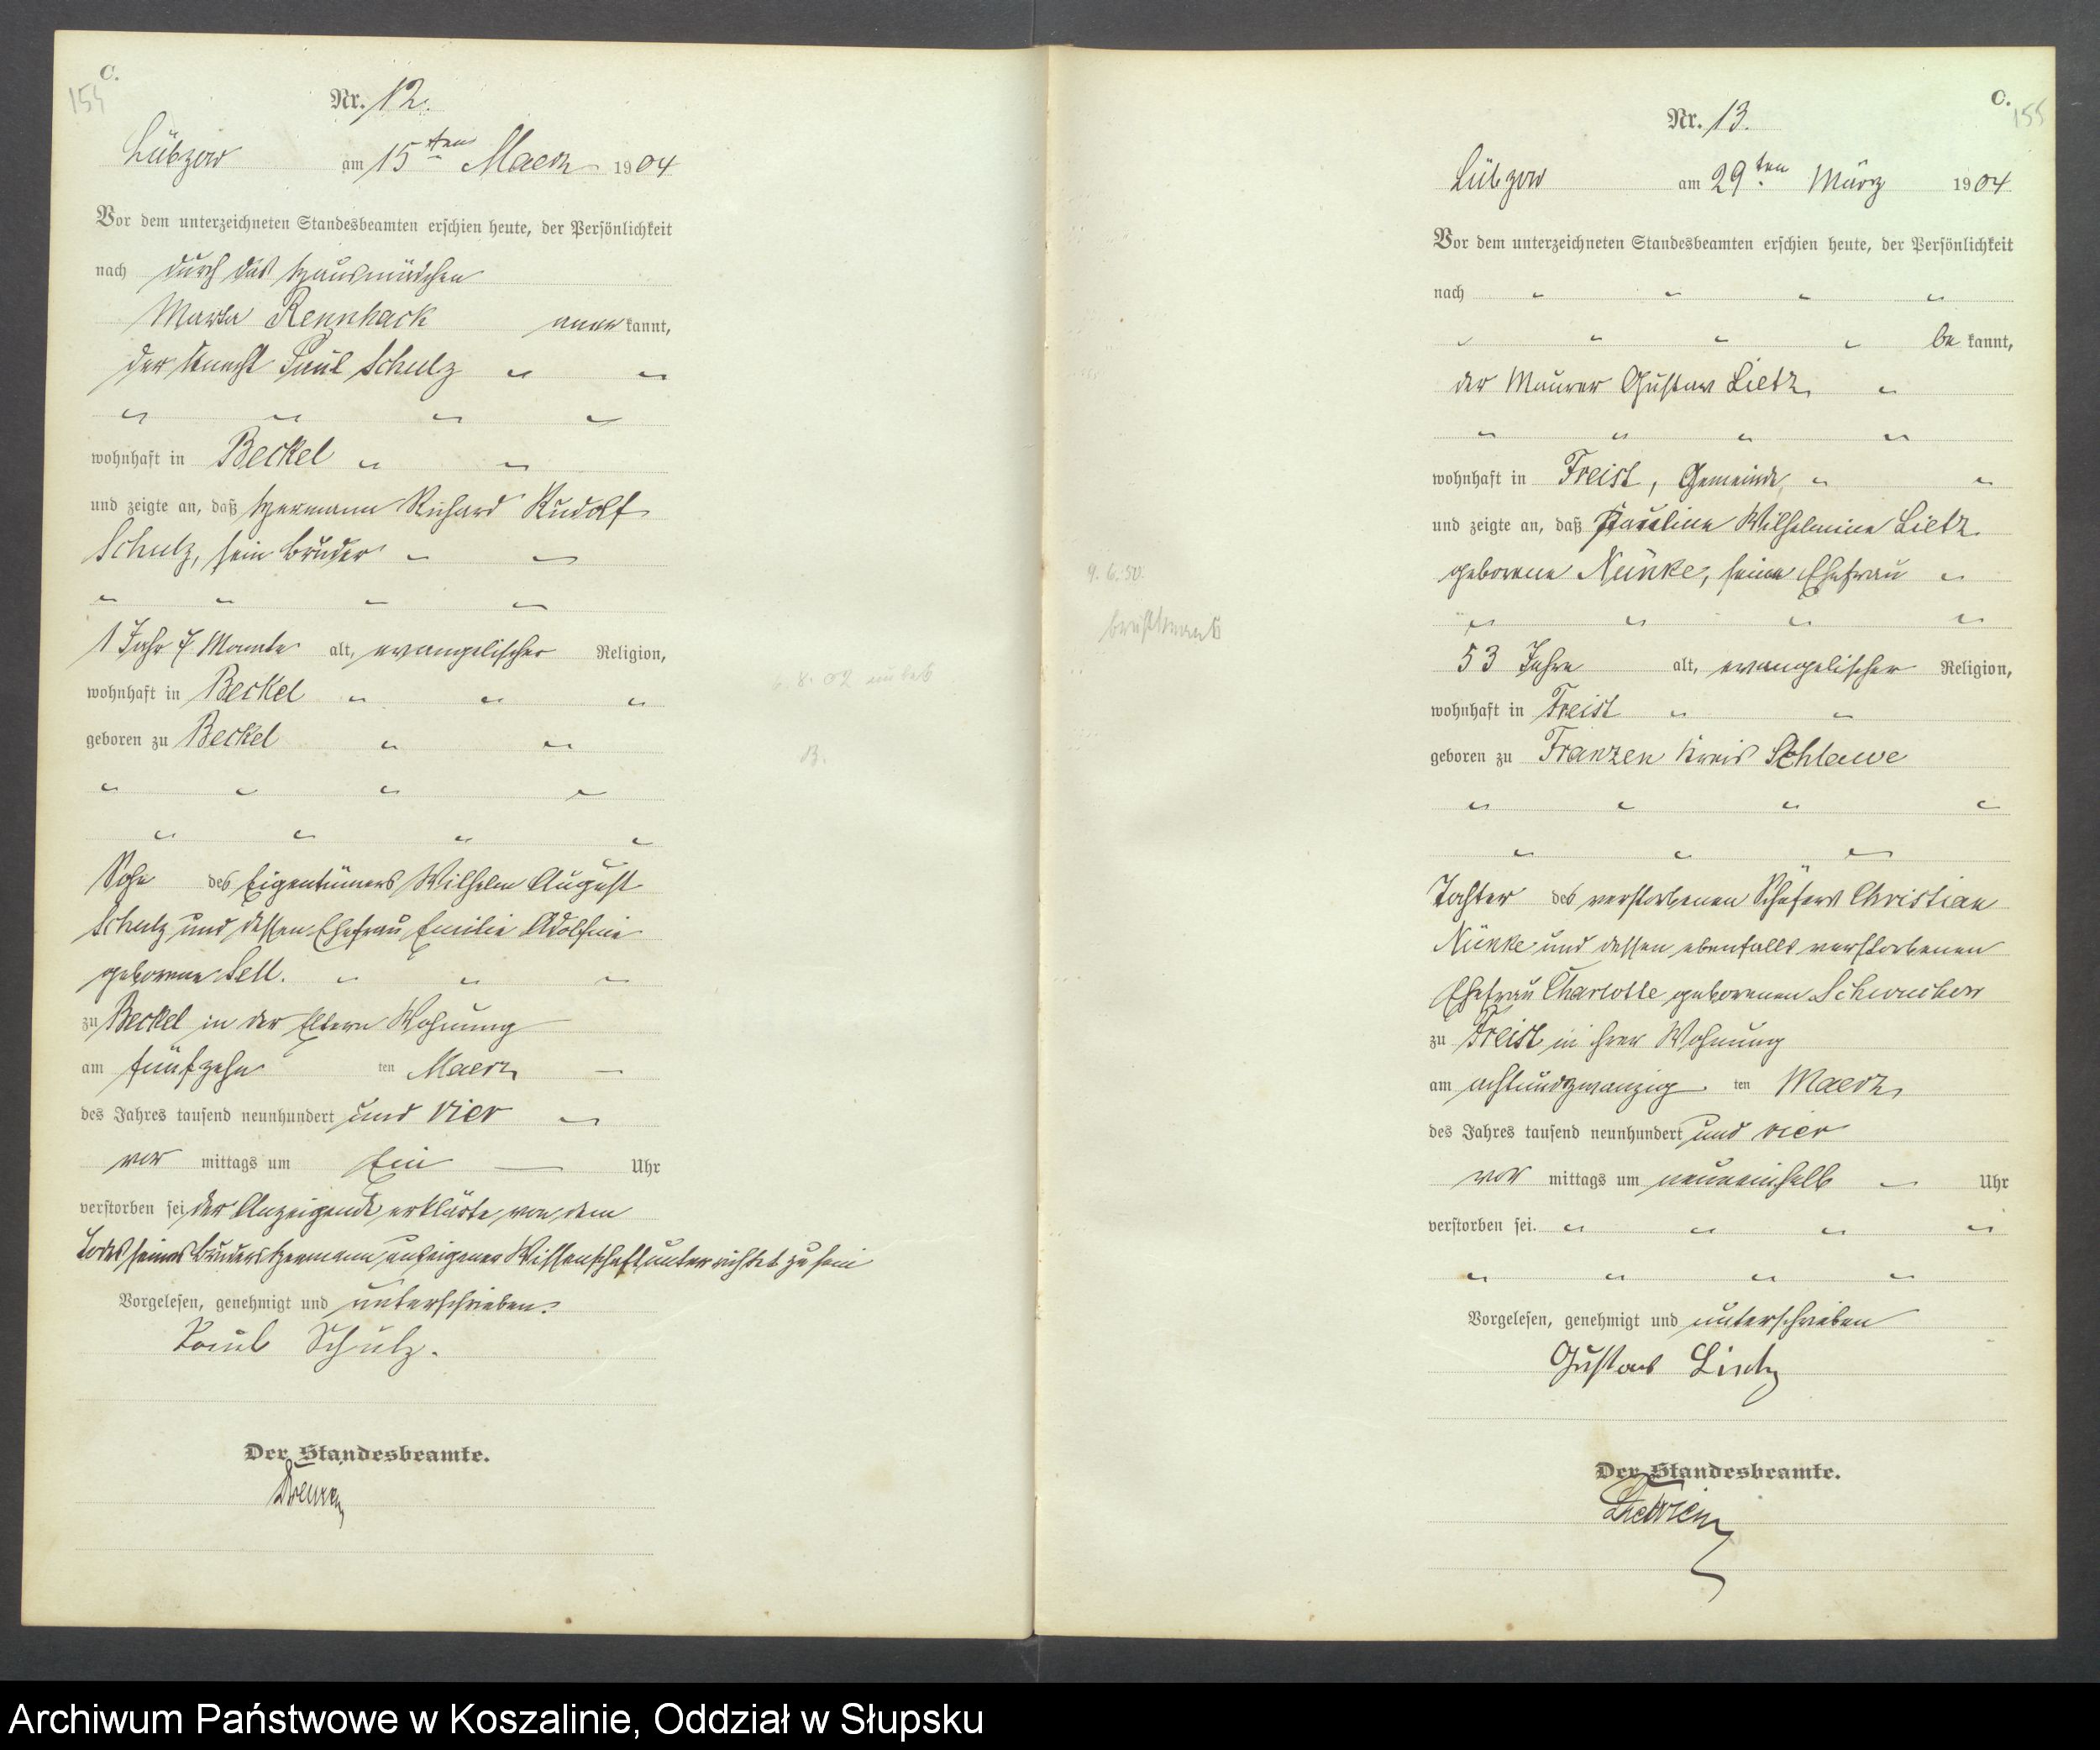 C.
154
Nr. 12.
Lübzow am 15ten Maerz 1904
Vor dem unterzeichneten Standesbeamten erschien heute, der Persönlichkeit
nach durch das Hausmädchen
Marta Rennhack anerkannt,
der Knecht Paul Schulz
wohnhaft in Beckel
und zeigte an, daß Hermann Richard Rudolf
Schulz, sein Bruder
1 Jahr 7 Monate alt, evangelischer Religion,
wohnhaft in Beckel
geboren zu Beckel
Sohn des Eigentümers Wilhelm August
Schulz und dessen Ehefrau Emilie
geborene Sell.
zu Beckel in der Eltern Wohnung
am fünfzehn ten Maerz
des Jahres tausend neunhundert und vier
vor mittags um Ein Uhr
verstorben sei der Anzeigende erklärte, von dem
Tode seines Bruders Hermann aus eigener Wissenschaft unterrichtet zu sein
Vorgelesen, genehmigt und unterschrieben.
Paul Schulz.
Der Standesbeamte.
C.
155
Nr. 13.
Lübzow am 29ten März 1904
Vor dem unterzeichneten Standesbeamten erschien heute, der Persönlichkeit
nach
be kannt,
der Maurer Gustav Lietz
wohnhaft in Freist, Gemeinde
und zeigte an, daß Pauline Wilhelmine Lietz
geborene Nünke, seine Ehefrau
9. 6. 50.
53 Jahre alt, evangelischer Religion,
wohnhaft in Freist
geboren zu Franzen Kreis Schlawe
Tochter des verstorbenen Schäfers Christian
Nünke und dessen ebenfalls verstorbenen
Ehefrau Charlotte geborenen
zu Freist in ihrer Wohnung
am achtundzwanzig ten Maerz
des Jahres tausend neunhundert und vier
vor mittags um neuneinhalb Uhr
verstorben sei.
Vorgelesen, genehmigt und unterschrieben
Gustav Lietz
Der Standesbeamte.
Archiwum Państwowe w Koszalinie, Oddział w Słupsku